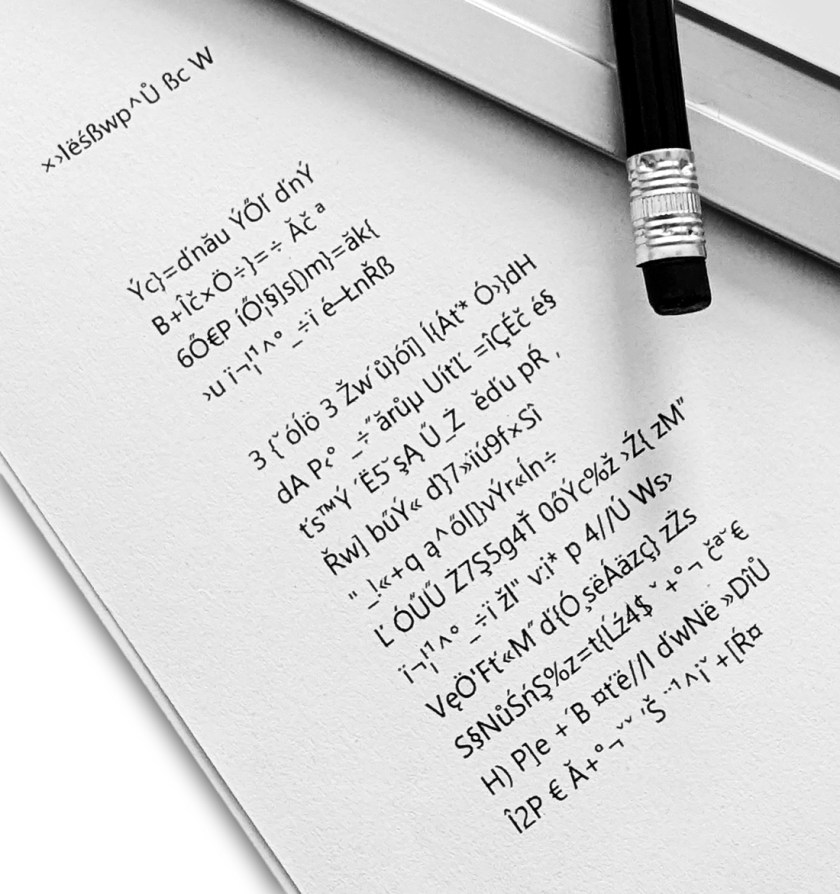 ×›lëśßwp^Ů ßc W
Ýc}=ďnău ÝŐľ ďnÝ
B+Îč×Ö÷}=÷ Ăč ª
6Ő€P íŐ¦§]s[)m}=ăk{
›u ï¬¦¹^° _÷ï é—ŁnŘß
3 {˘óĺö 3 Žw´ů}óî] Í{Áť* Ó›}dH
dA P‹° _÷˝ărůµ UíťĽ =îÇÉč é§
ťs™Ý ´Ë5˘şĄ Ű_Ż ěďu pŔ ,
Řw] bűÝ« d}7»ïú9f×Sî
" _¦«+q ą^őI[}vÝr«Ín÷
Ľ ÓŰŰ Ż7Ş5g4Ť 0őÝc%ž ›Ź{ zM"
ï¬¦¹^° _÷ï žl" v:i* p 4//Ú Ws›
VęÖ'Fť«M˝ď{Ó¸sëÁäzç} zŽs
S§NůŚńŞ%z=t{Ĺź4$ ˇ +°¬ čª˘€
H) P]e +´B ¤ťë//l ďwNë »DîŮ
Î2P € Ă+°¬ˇˇ 'Š ¨¹^¡ˇ +[Ŕ¤